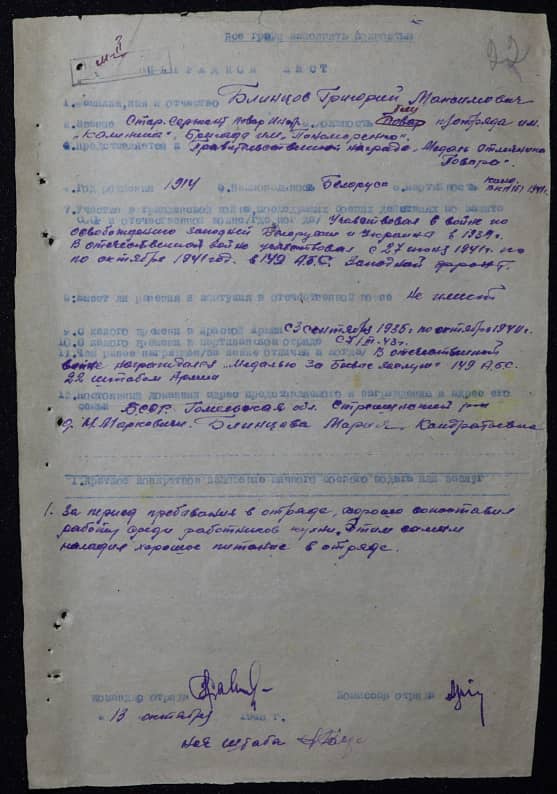 Все графы заполнять
22
НАГРАДНОЙ ЛИСТ
1. Фамилия, имя и отчество Блинцов Григорий Максимович
2. Звание Стар. Сержант должность Повар отряда им.
"Калинина", Бригада им. "Пономоренко".
3. Представляется к Правительственной награде, Медаль Отличника
Повара".
4. Год рождения 1914 5. Национальность Беларус 6. партийность
7. Участие в гражданской войне
и отечественной войне Учавствовал в войне по
освобождению западной Белорусии и Украина в 1939 г.
В отечественной войне учавствовал с 27 июня 1941 г. по
по октября 1941 год. в 149 А.Б.С. Западной фронт.
8. Имеет ли ранения и контузия в отечественной войне Не имеет
9. С какого времени в Красной Армии С 3 сентября 1936 г. по октября 1941 г.
10. С какого времени в партизанском отряде
11. Чем ранее награжден/за какие отличия и когда/ В отечественной
войне награждался "Медалью За Боевые заслуги" 149 А.Б.С.
22 штабом Армии
12. Постоянный домашний адрес представляемого к награждению и адрес его
семьи БССР. Гомельская обл. Стрешинский р-н
д. Н. Марковичи. Блинцова Мария Кандратьевна
1. Краткое конкретное изложение личного боевого подвига или заслуг
1. За период пребывания в отряде, хорошо сопоставил
работу среди работников кухни, Этим самым
наладил хорошое питание в отряде.
Командир отряда Комиссар отряда
" 13 октября 1943 г.
Нач штаба